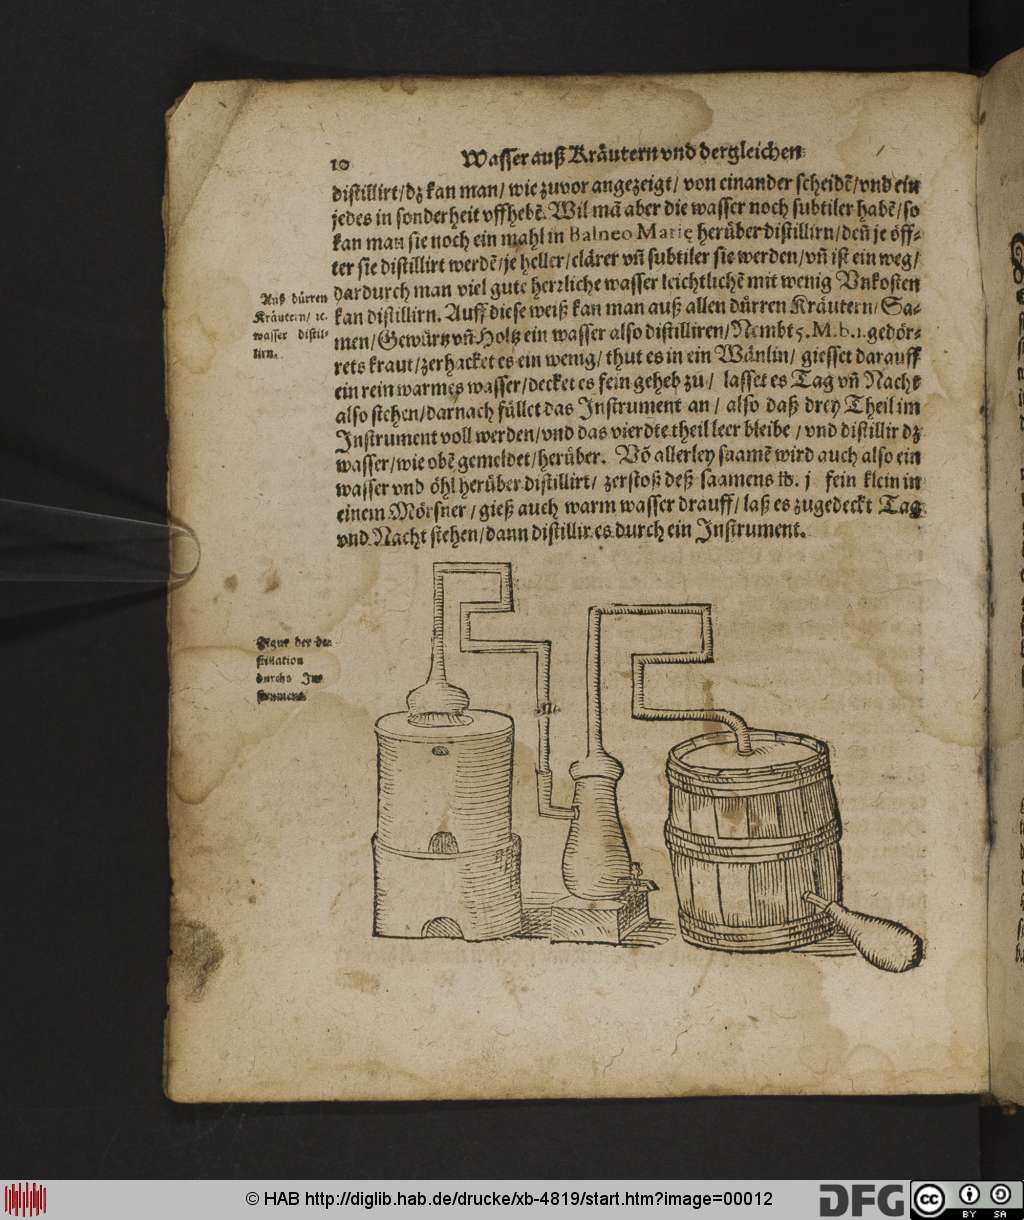 10
Wasser auß Kräutern vnd dergleichen
distillirt/dz kan man/ wie zuvor angezeigt/ von einander scheidē/vnd ein
jedes in sonderheit vffhebē. Wil mā aber die wasser noch subtiler habē/so
kan man sie noch ein mahl in Balneo Marię herüber distillirn/deñ je öff-
ter sie distillirt werdē/je heller/clärer vñ subtiler sie werden/vñ ist ein weg/
dardurch man viel gute herrliche wasser leichtlichē mit wenig Vnkosten
kan distillirn. Auff diese weiß kan man auß allen dürren Kräutern/ Sa-
men/Gewürtz vñ Holtz ein wasser also distilliren/Nembt 5. M. b. 1. gedör-
rets kraut/zerhacket es ein wenig/ thut es in ein Wänlin/ giesset darauff
ein rein warmes wasser/decket es fein geheb zu/ lasset es Tag vñ Nacht
also stehen/darnach füllet das Instrument an/ also daß drey Theil im
Instrument voll werden/vnd das vierdte theil leer bleibe/ vnd distillir dz
wasser/wie obē gemeldet/herüber. Vō allerley saamē wird auch also ein
wasser vnd öhl herüber distillirt/ zerstoß deß saamens ℔. j fein klein in
einem Mörsner/ gieß auch warm wasser drauff/ laß es zugedeckt Tag
vnd Nacht stehen/dann distillir es durch ein Instrument.
Auß dürren
Kräutern/ ꝛc.
wasser distil-
lirn.
Figur der de-
stillation
durchs In-
strument.
© HAB http://diglib.hab.de/drucke/xb-4819/start.htm?image=00012
DFG
cc
BY SA